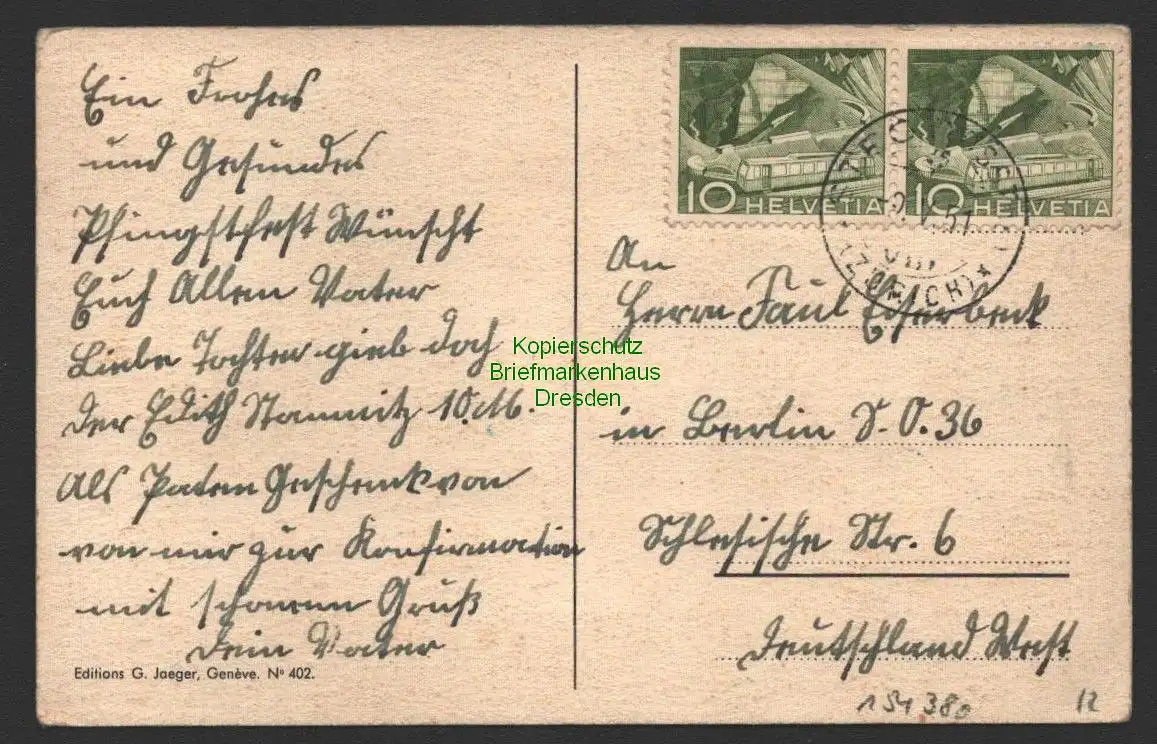 Ein Frohes
und Gesundes
Pfingstfest Wünscht
Euch Allen Vater
Liebe Tochter gieb doch
der Edith Stamnitz 10 M.
Als Paten Geschenk von
von mir zur Konfirmation
mit schönem Gruß
Dein Vater
Editions G. Jaeger, Genève. Nº 402.
10 HELVETIA
10 HELVETIA
(ZÜRICH)
An
Herrn Paul
Kopierschutz
Briefmarkenhaus
Dresden
in Berlin S.O.36
Schlesische Str. 6
Deutschland West
151380
12